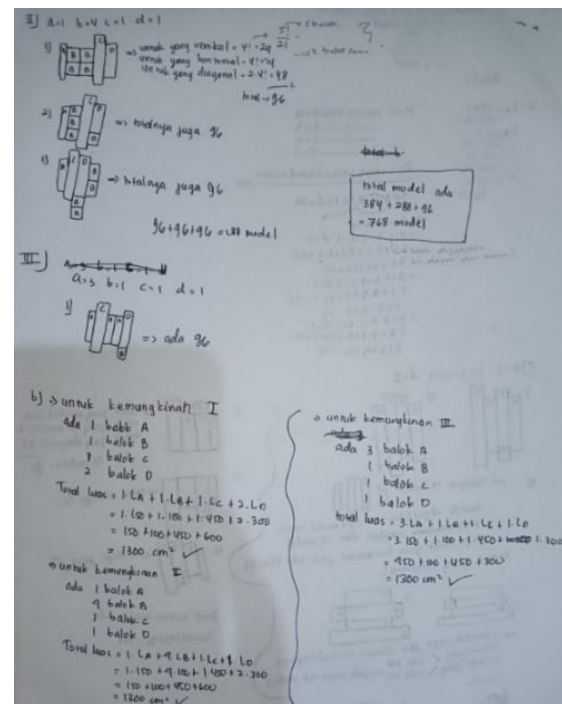 II) a=1 b=4 c=1 d=1
1)
=> untuk yang vertikal = 4! = 24
untuk yang horizontal = 4! = 24
untuk yang diagonal = 2.4! = 48
total → 96
2)
=> totalnya juga 96
=> totalnya juga 96
96+96+96 = 288 model
total model ada
384 + 288 + 96
= 768 model
III)
a=3 b=1 c=1 d=1
1)
=> ada 96
b) > untuk kemungkinan I
ada 1 balok A
1 balok B
1 balok C
2 balok D
Total luas = 1.LA + 1.LB + 1.LC + 2.LD
= 1.150 + 1.100 + 1.450 + 2.300
= 150 + 100 + 450 + 600
= 1300 cm² ✓
> untuk kemungkinan II
Ada 1 balok A
4 balok B
1 balok C
1 balok D
Total luas = 1.LA + 4.LB + 1.LC + 1.LD
= 1.150 + 4.100 + 1.450 + 2.300
= 150 + 100 + 450 + 600
= 1300 cm² ✓
> untuk kemungkinan III
ada 3 balok A
1 balok B
1 balok C
1 balok D
total luas = 3.LA + 1.LB + 1.LC + 1.LD
= 3.150 + 1.100 + 1.450 + 1.300
= 450 + 100 + 450 + 300
= 1300 cm² ✓